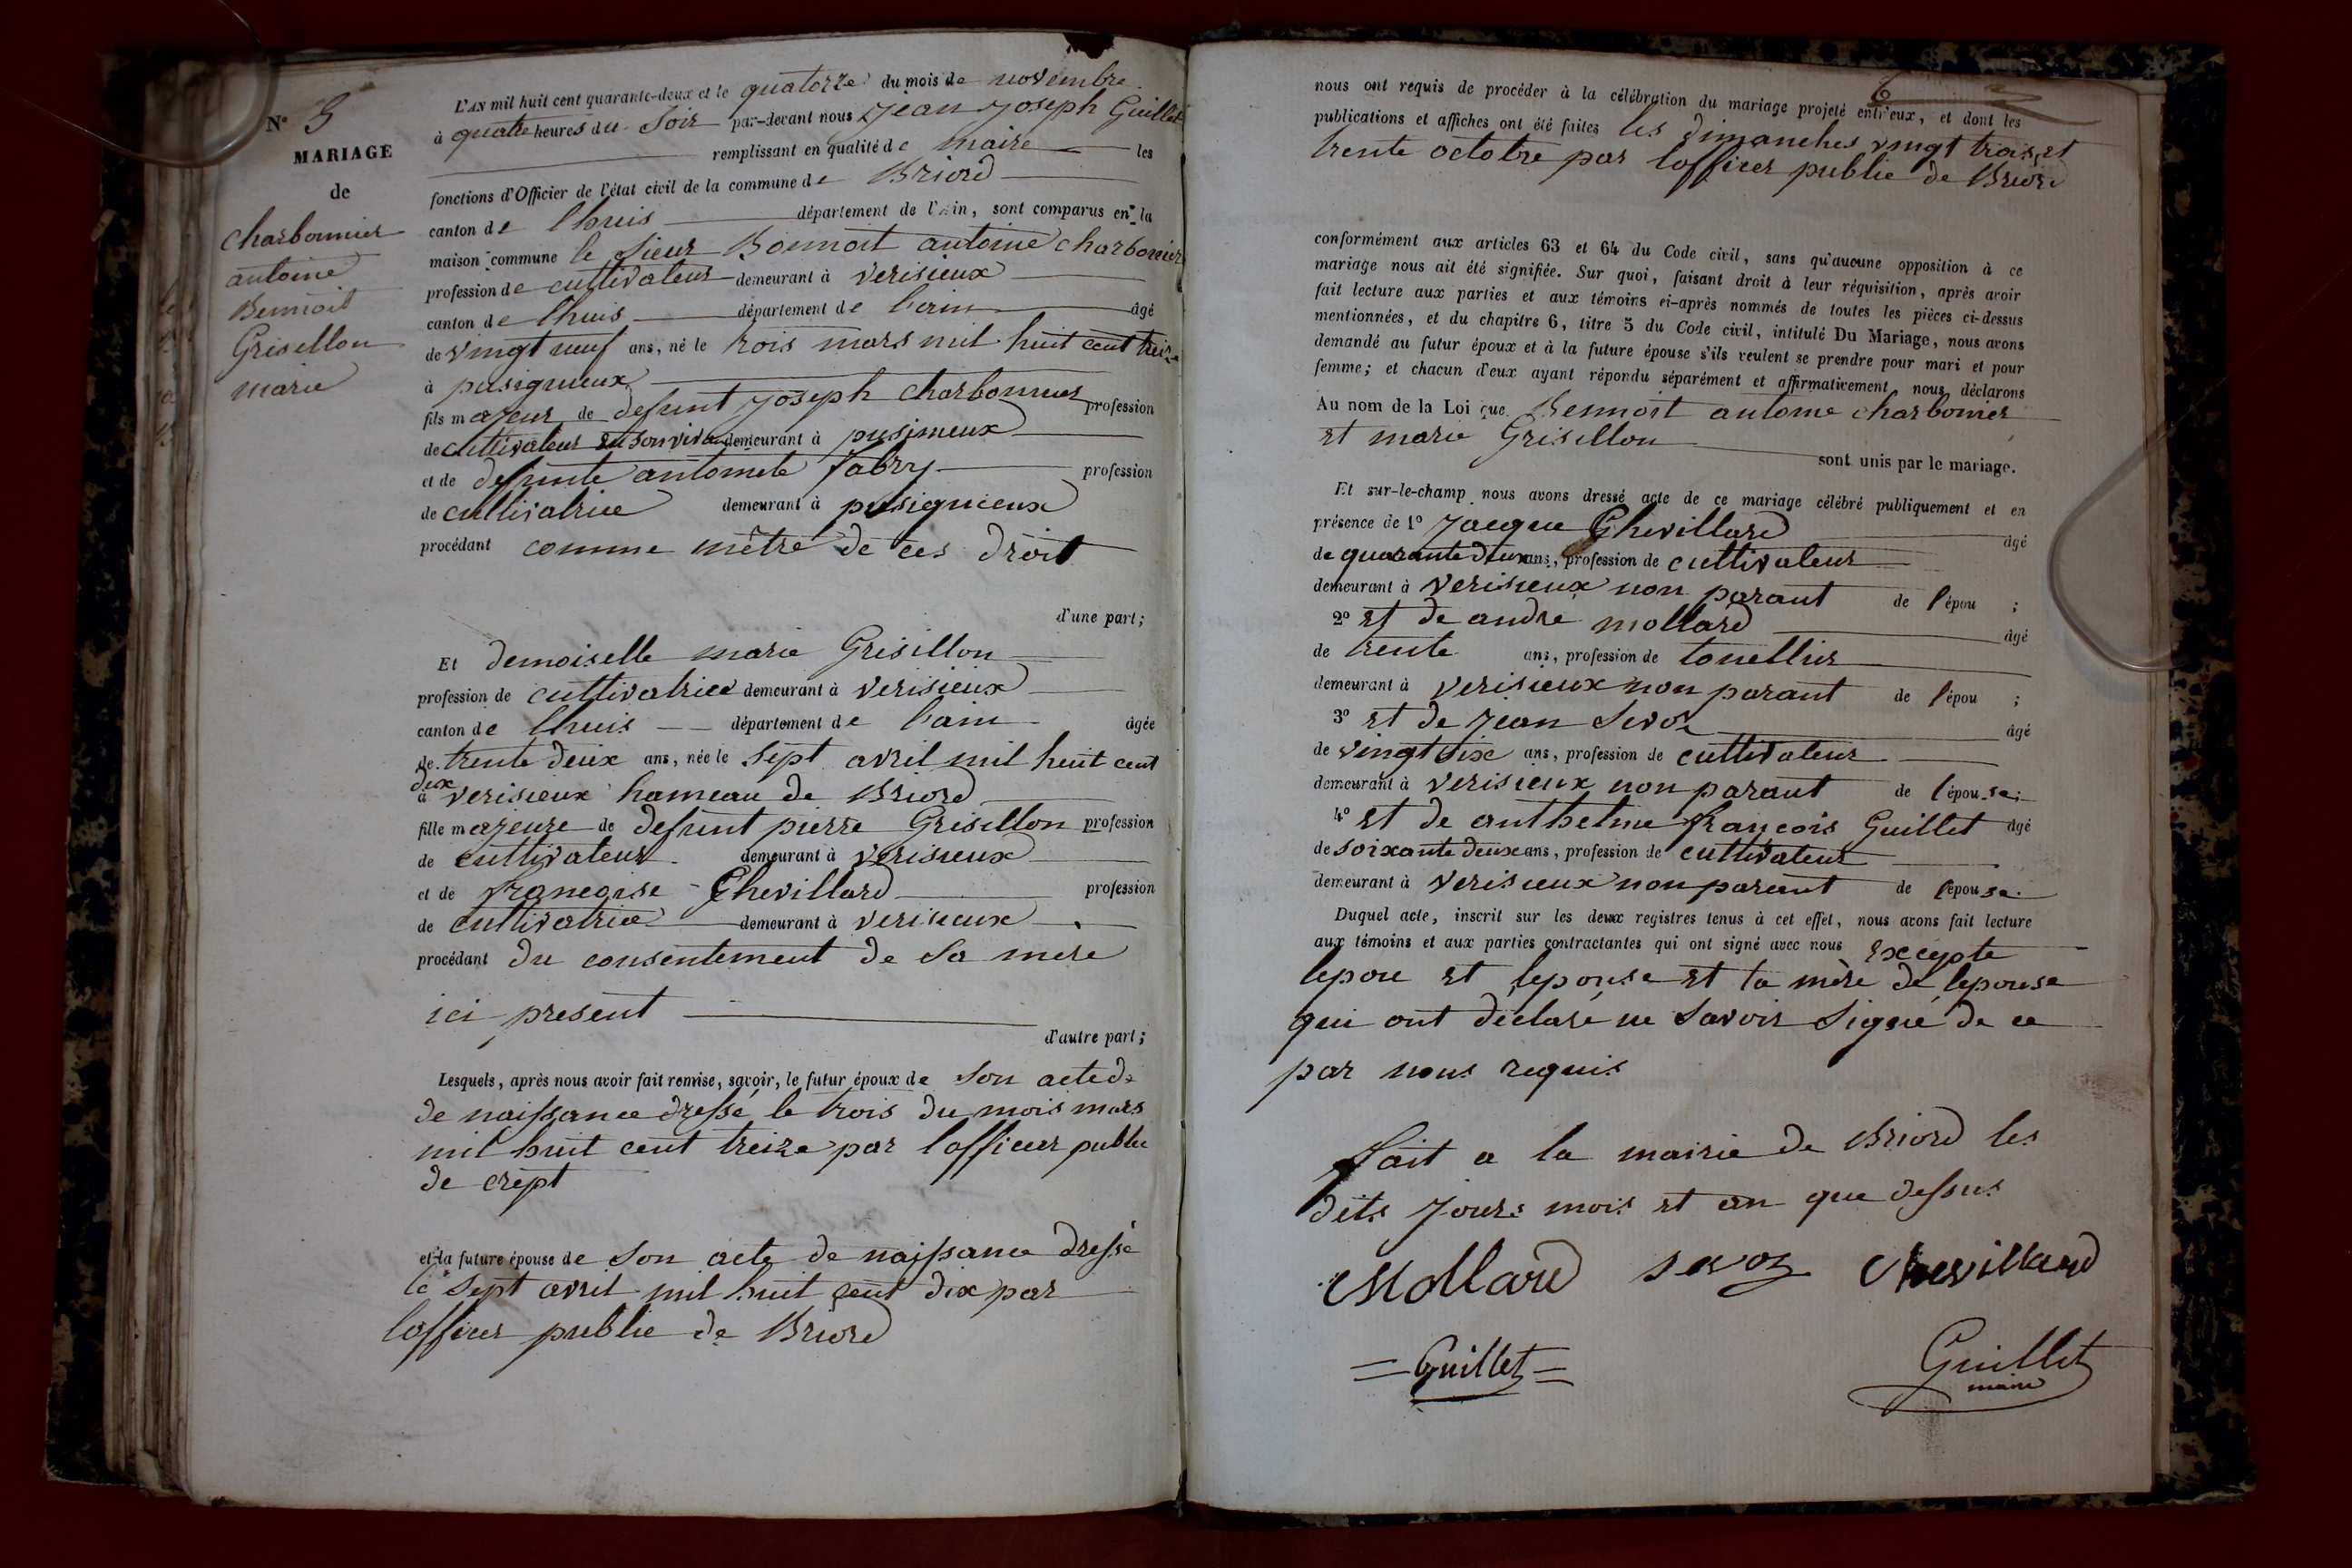 N° 5
MARIAGE
de
Charbonnier
antoine
Bennoit
Grisellon
marie
L'AN mil huit cent quarante-deux et le quatorze du mois de novembre
à quatre heures du Soir par-devant nous Jean Joseph Guillet
remplissant en qualité de maire les
fonctions d'Officier de l'état civil de la commune de Briord
canton de lhuis département de l'Ain, sont comparus en la
maison commune le Sieur Bennoit antoine charbonier
profession de cultivateur demeurant à verisieux
canton de lhuis département de lain âgé
de vingt neuf ans, né le trois mars mil huit cent treize
à pusignieux
fils majeur de defunt Joseph charbonnier profession
de cultivateur en son vivan demeurant à pusinieux
et de defunte antoinete fabry profession
de cultivatrice demeurant à pusignieux
procédant comme mêtre de ces droit
d'une part;
Et demoiselle marie Grisillon
profession de cultivatrice demeurant à verisieux
canton de lhuis département de lain âgée
de trente deux ans, née le sept avril mil huit cent
dix
à verisieux hameau de Briord
fille majeure de defunt pierre Grisellon profession
de cultivateur demeurant à verisieux
et de francoise Chevillard profession
de cultivatrice demeurant à verisieux
procédant du consentement de sa mere
ici present
d'autre part;
Lesquels, après nous avoir fait remise, savoir, le futur époux de son acte de
de naissance dressé le trois du mois mars
mil huit cent treize par lofficier public
de crept
et la future épouse de son acte de naissance dressé
le sept avril mil huit cent dix par
lofficier public de Briord
6
nous ont requis de procéder à la célébration du mariage projeté entr'eux, et dont les
publications et affiches ont été faites les dimanches vingt trois et
trente octobre par lofficier public de Briord
conformément aux articles 63 et 64 du Code civil, sans qu'aucune opposition à ce
mariage nous ait été signifiée. Sur quoi, faisant droit à leur réquisition, après avoir
fait lecture aux parties et aux témoins ci-après nommés de toutes les pièces ci-dessus
mentionnées, et du chapitre 6, titre 5 du Code civil, intitulé Du Mariage, nous avons
demandé au futur époux et à la future épouse s'ils veulent se prendre pour mari et pour
femme; et chacun d'eux ayant répondu séparément et affirmativement, nous déclarons
Au nom de la Loi que Bennoit antoine charbonier
et marie Grisellon
sont unis par le mariage.
Et sur-le-champ nous avons dressé acte de ce mariage célébré publiquement et en
présence de 1° Jacque Chevillard âgé
de quarante deux ans, profession de cultivateur
demeurant à verisieux non parant de lépou ;
2° et de andré mollard âgé
de trente ans, profession de tonellier
demeurant à verisieux non parant de lépou ;
3° et de jean Savoz âgé
de vingt six ans, profession de cultivateur
demeurant à verisieux non parant de lépouse;
4° et de anthelme françois Guillet âgé
de soixante deux ans, profession de cultivateur
demeurant à verisieux non parant de lepouse.
Duquel acte, inscrit sur les deux registres tenus à cet effet, nous avons fait lecture
aux témoins et aux parties contractantes qui ont signé avec nous excepte
lepou et lepouse et la mère de lepouse
qui ont déclaré ne savoir signé de ce
par nous requis
fait a la mairie de Briord les
dits jours mois et an que dessus
Mollard savoz Chevillard
Guillet Guillet
maire